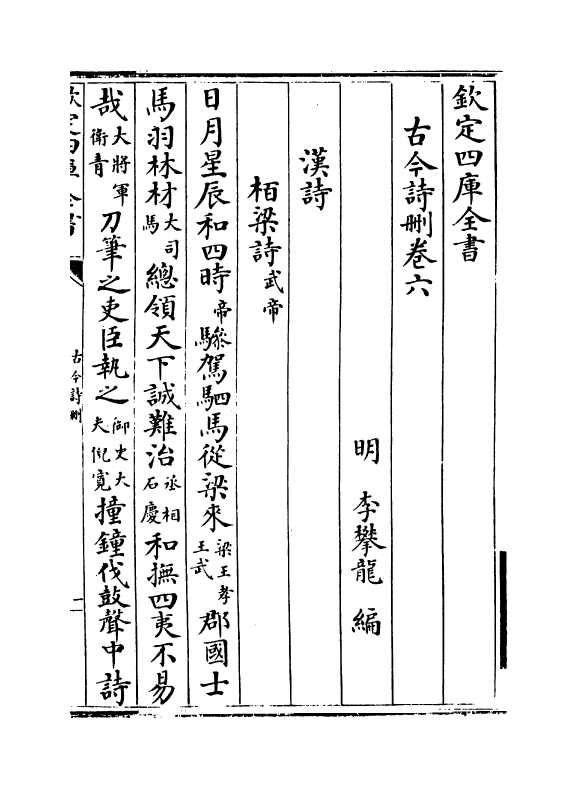 欽定四庫全書
古今詩刪卷六
明 李攀龍 編
漢詩
柏梁詩武帝
日月星辰和四時帝驂駕駟馬從梁來梁王孝王武郡國士
馬羽林材大司馬總領天下誠難治丞相石慶和撫四夷不易
哉大將軍衛青刀筆之吏臣執之御史大夫倪寛撞鐘伐鼓聲中詩
欽定四庫全書
古今詩刪
二